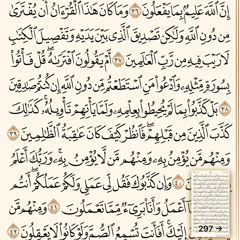 إِنَّ ٱللَّهَ عَلِيمٌۢ بِمَا يَفْعَلُونَ ٣٦ وَمَا كَانَ هَٰذَا ٱلْقُرْءَانُ أَن يُفْتَرَىٰ
مِن دُونِ ٱللَّهِ وَلَٰكِن تَصْدِيقَ ٱلَّذِى بَيْنَ يَدَيْهِ وَتَفْصِيلَ ٱلْكِتَٰبِ
لَا رَيْبَ فِيهِ مِن رَّبِّ ٱلْعَٰلَمِينَ ٣٧ أَمْ يَقُولُونَ ٱفْتَرَىٰهُ قُلْ فَأْتُوا۟
بِسُورَةٍ مِّثْلِهِۦ وَٱدْعُوا۟ مَنِ ٱسْتَطَعْتُم مِّن دُونِ ٱللَّهِ إِن كُنتُمْ صَٰدِقِينَ
٣٨ بَلْ كَذَّبُوا۟ بِمَا لَمْ يُحِيطُوا۟ بِعِلْمِهِۦ وَلَمَّا يَأْتِهِمْ تَأْوِيلُهُۥ كَذَٰلِكَ
كَذَّبَ ٱلَّذِينَ مِن قَبْلِهِمْ فَٱنظُرْ كَيْفَ كَانَ عَٰقِبَةُ ٱلظَّٰلِمِينَ ٣٩
وَمِنْهُم مَّن يُؤْمِنُ بِهِۦ وَمِنْهُم مَّن لَّا يُؤْمِنُ بِهِۦ وَرَبُّكَ أَعْلَمُ
٤٠ وَإِن كَذَّبُوكَ فَقُل لِّى عَمَلِى وَلَكُمْ عَمَلُكُمْ أَنتُم
أَعْمَلُ وَأَنَا۠ بَرِىٓءٌ مِّمَّا تَعْمَلُونَ ٤١ وَمِنْهُم مَّن
إِلَيْكَ أَفَأَنتَ تُسْمِعُ ٱلصُّمَّ وَلَوْ كَانُوا۟ لَا يَعْقِلُونَ ٤٢
297 →